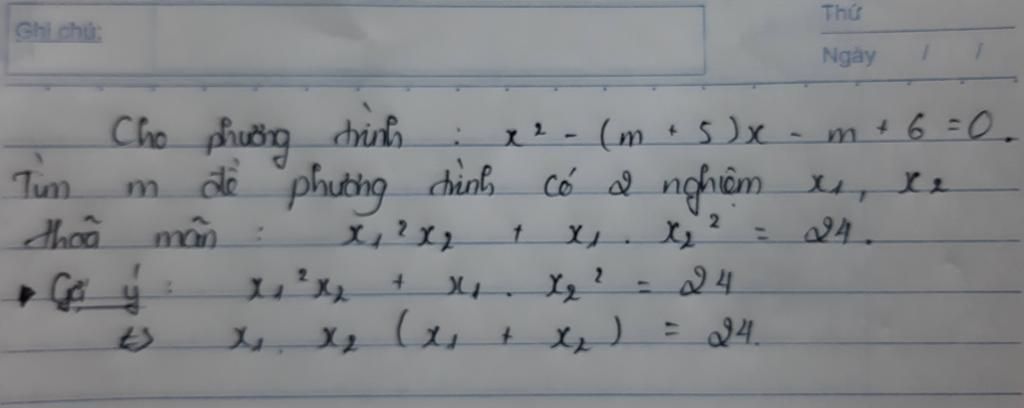 Ghi chú:
Thứ
Ngày / /
Cho phường trình : x² - (m + 5)x - m + 6 = 0.
Tìm m để phương trình có 2 nghiệm x₁, x₂
thoã mãn : x₁²x₂ + x₁ . x₂² = 24.
Gợi ý : x₁²x₂ + x₁ . x₂² = 24
⇔ x₁ . x₂ (x₁ + x₂) = 24.